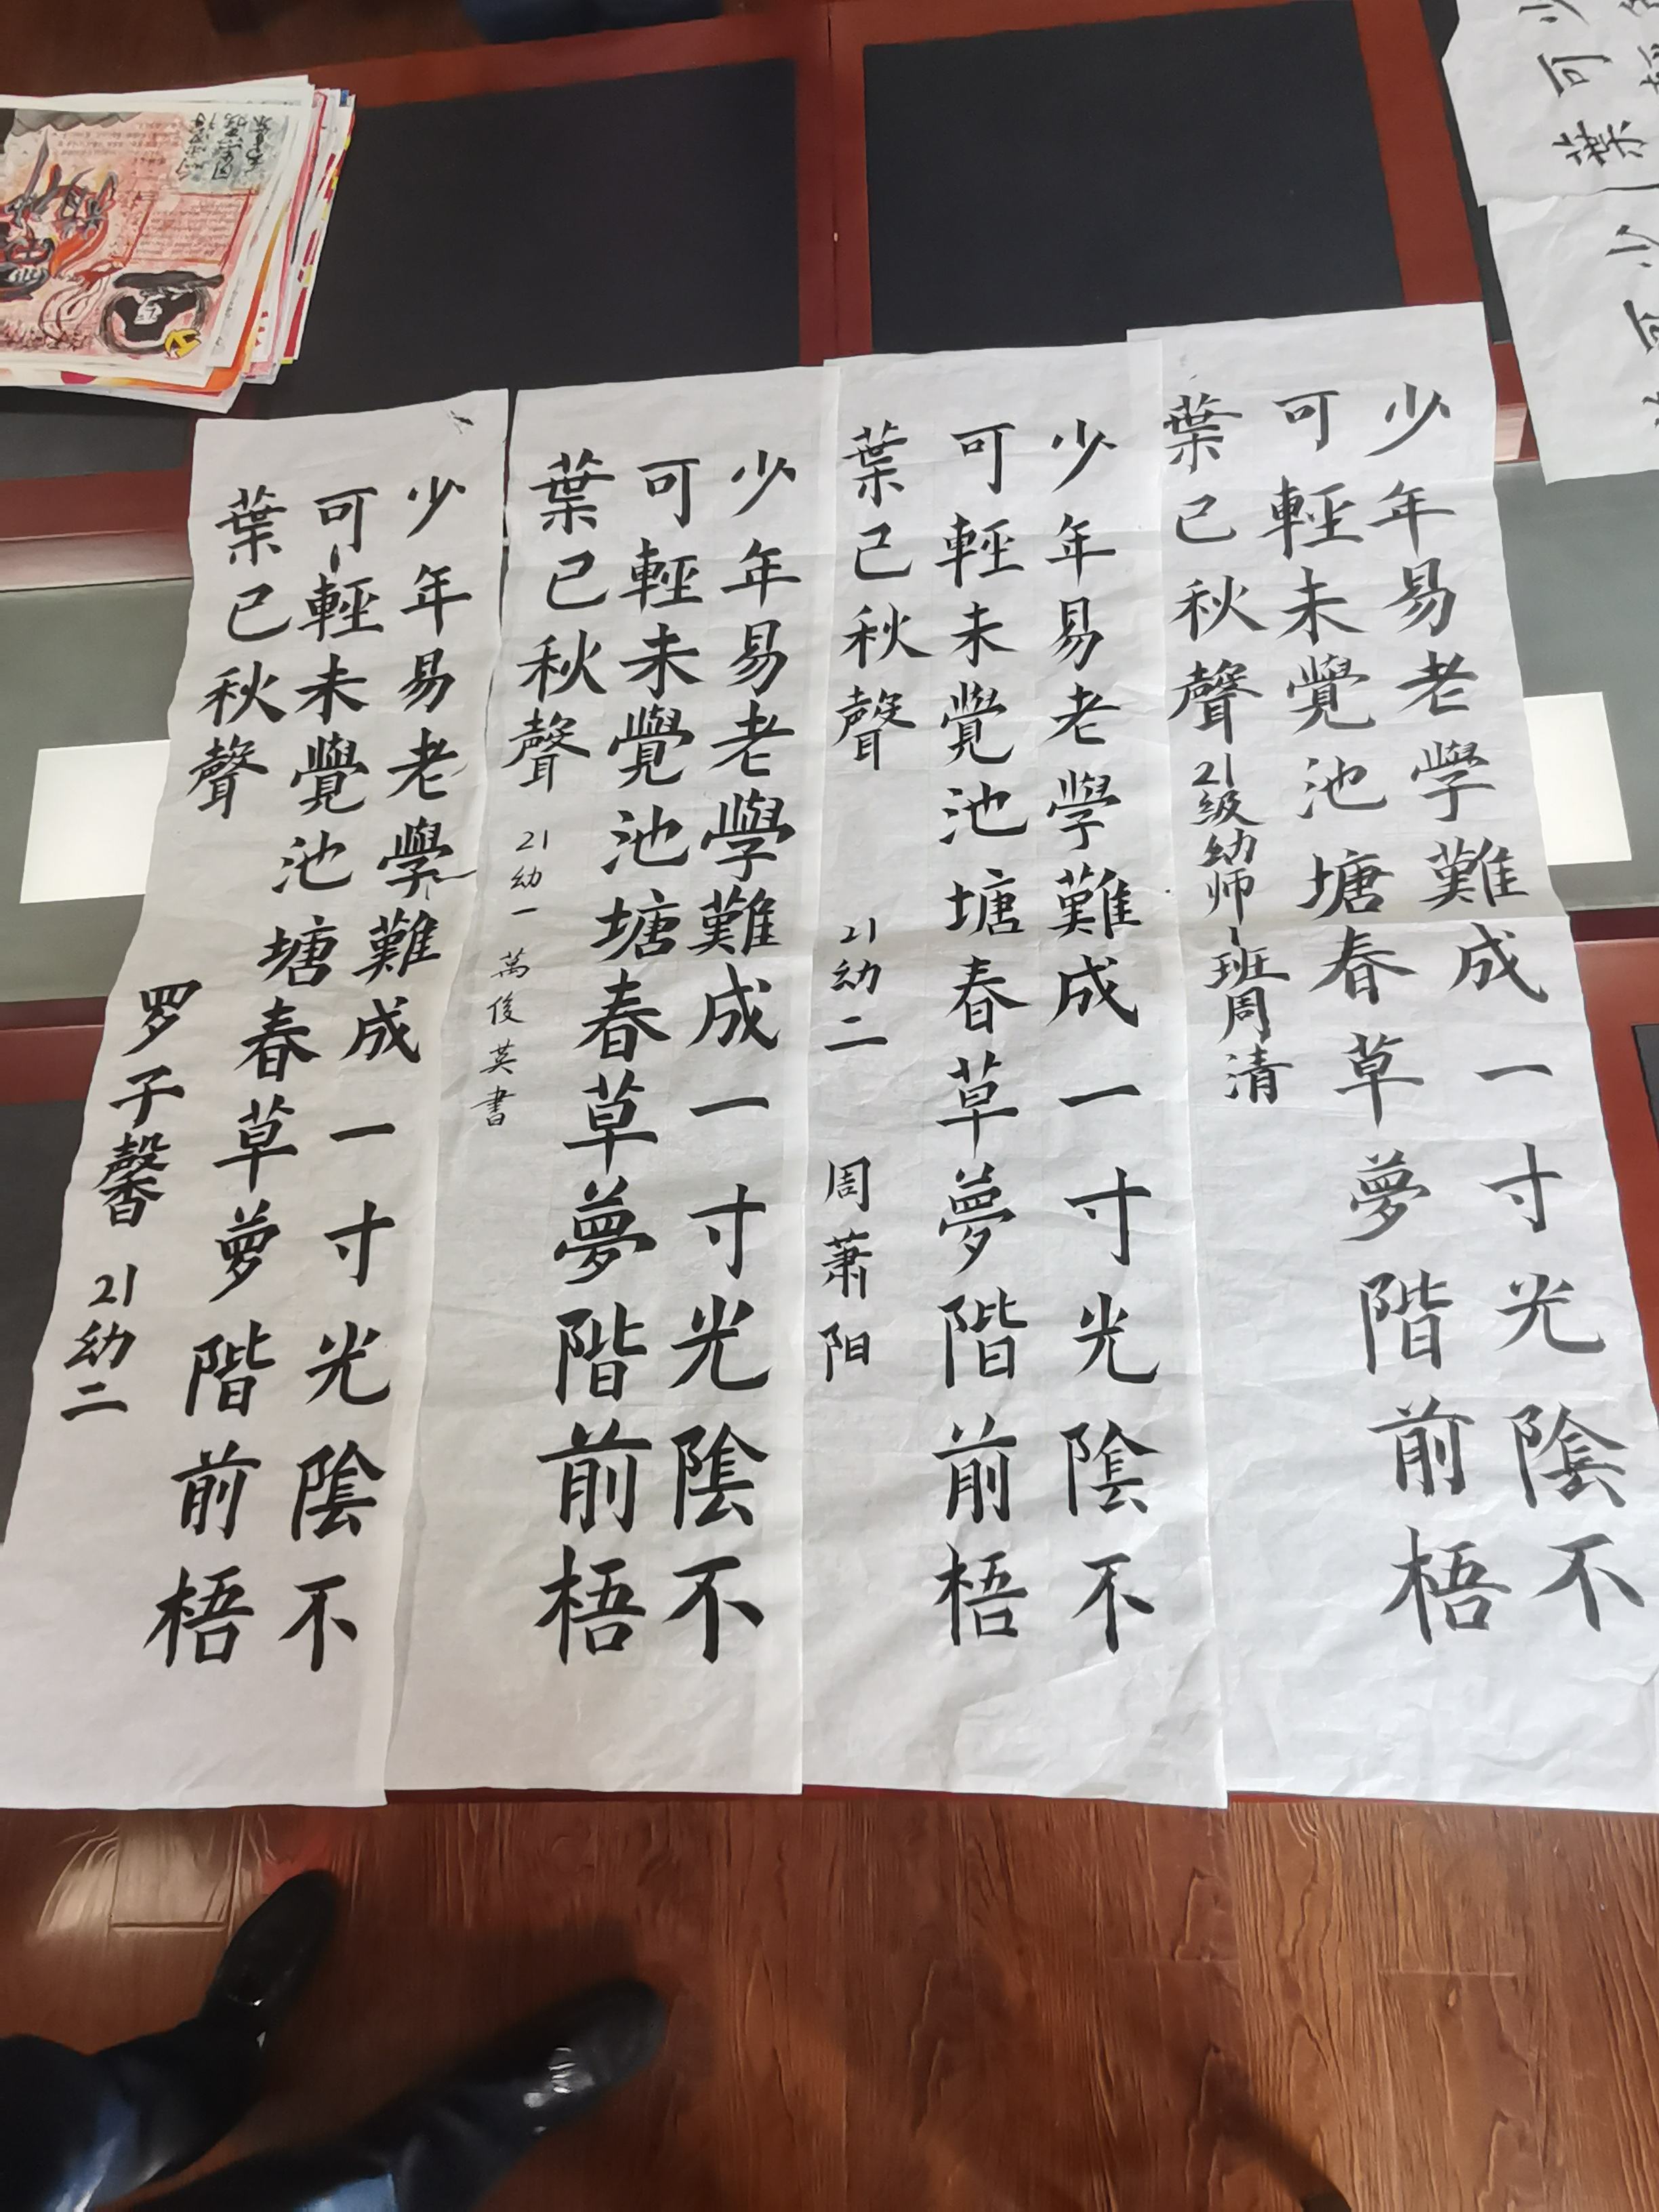 少年易老學難成一寸光陰不
可輕未覺池塘春草夢階前梧
葉已秋聲
21级幼师一班周清
少年易老學難成一寸光陰不
可輕未覺池塘春草夢階前梧
葉已秋聲
21幼二 周蕭阳
少年易老學難成一寸光陰不
可輕未覺池塘春草夢階前梧
葉已秋聲
21幼一 萬俊英書
少年易老學難成一寸光陰不
可輕未覺池塘春草夢階前梧
葉已秋聲
罗子馨 21幼二
少
可
葉
少
可